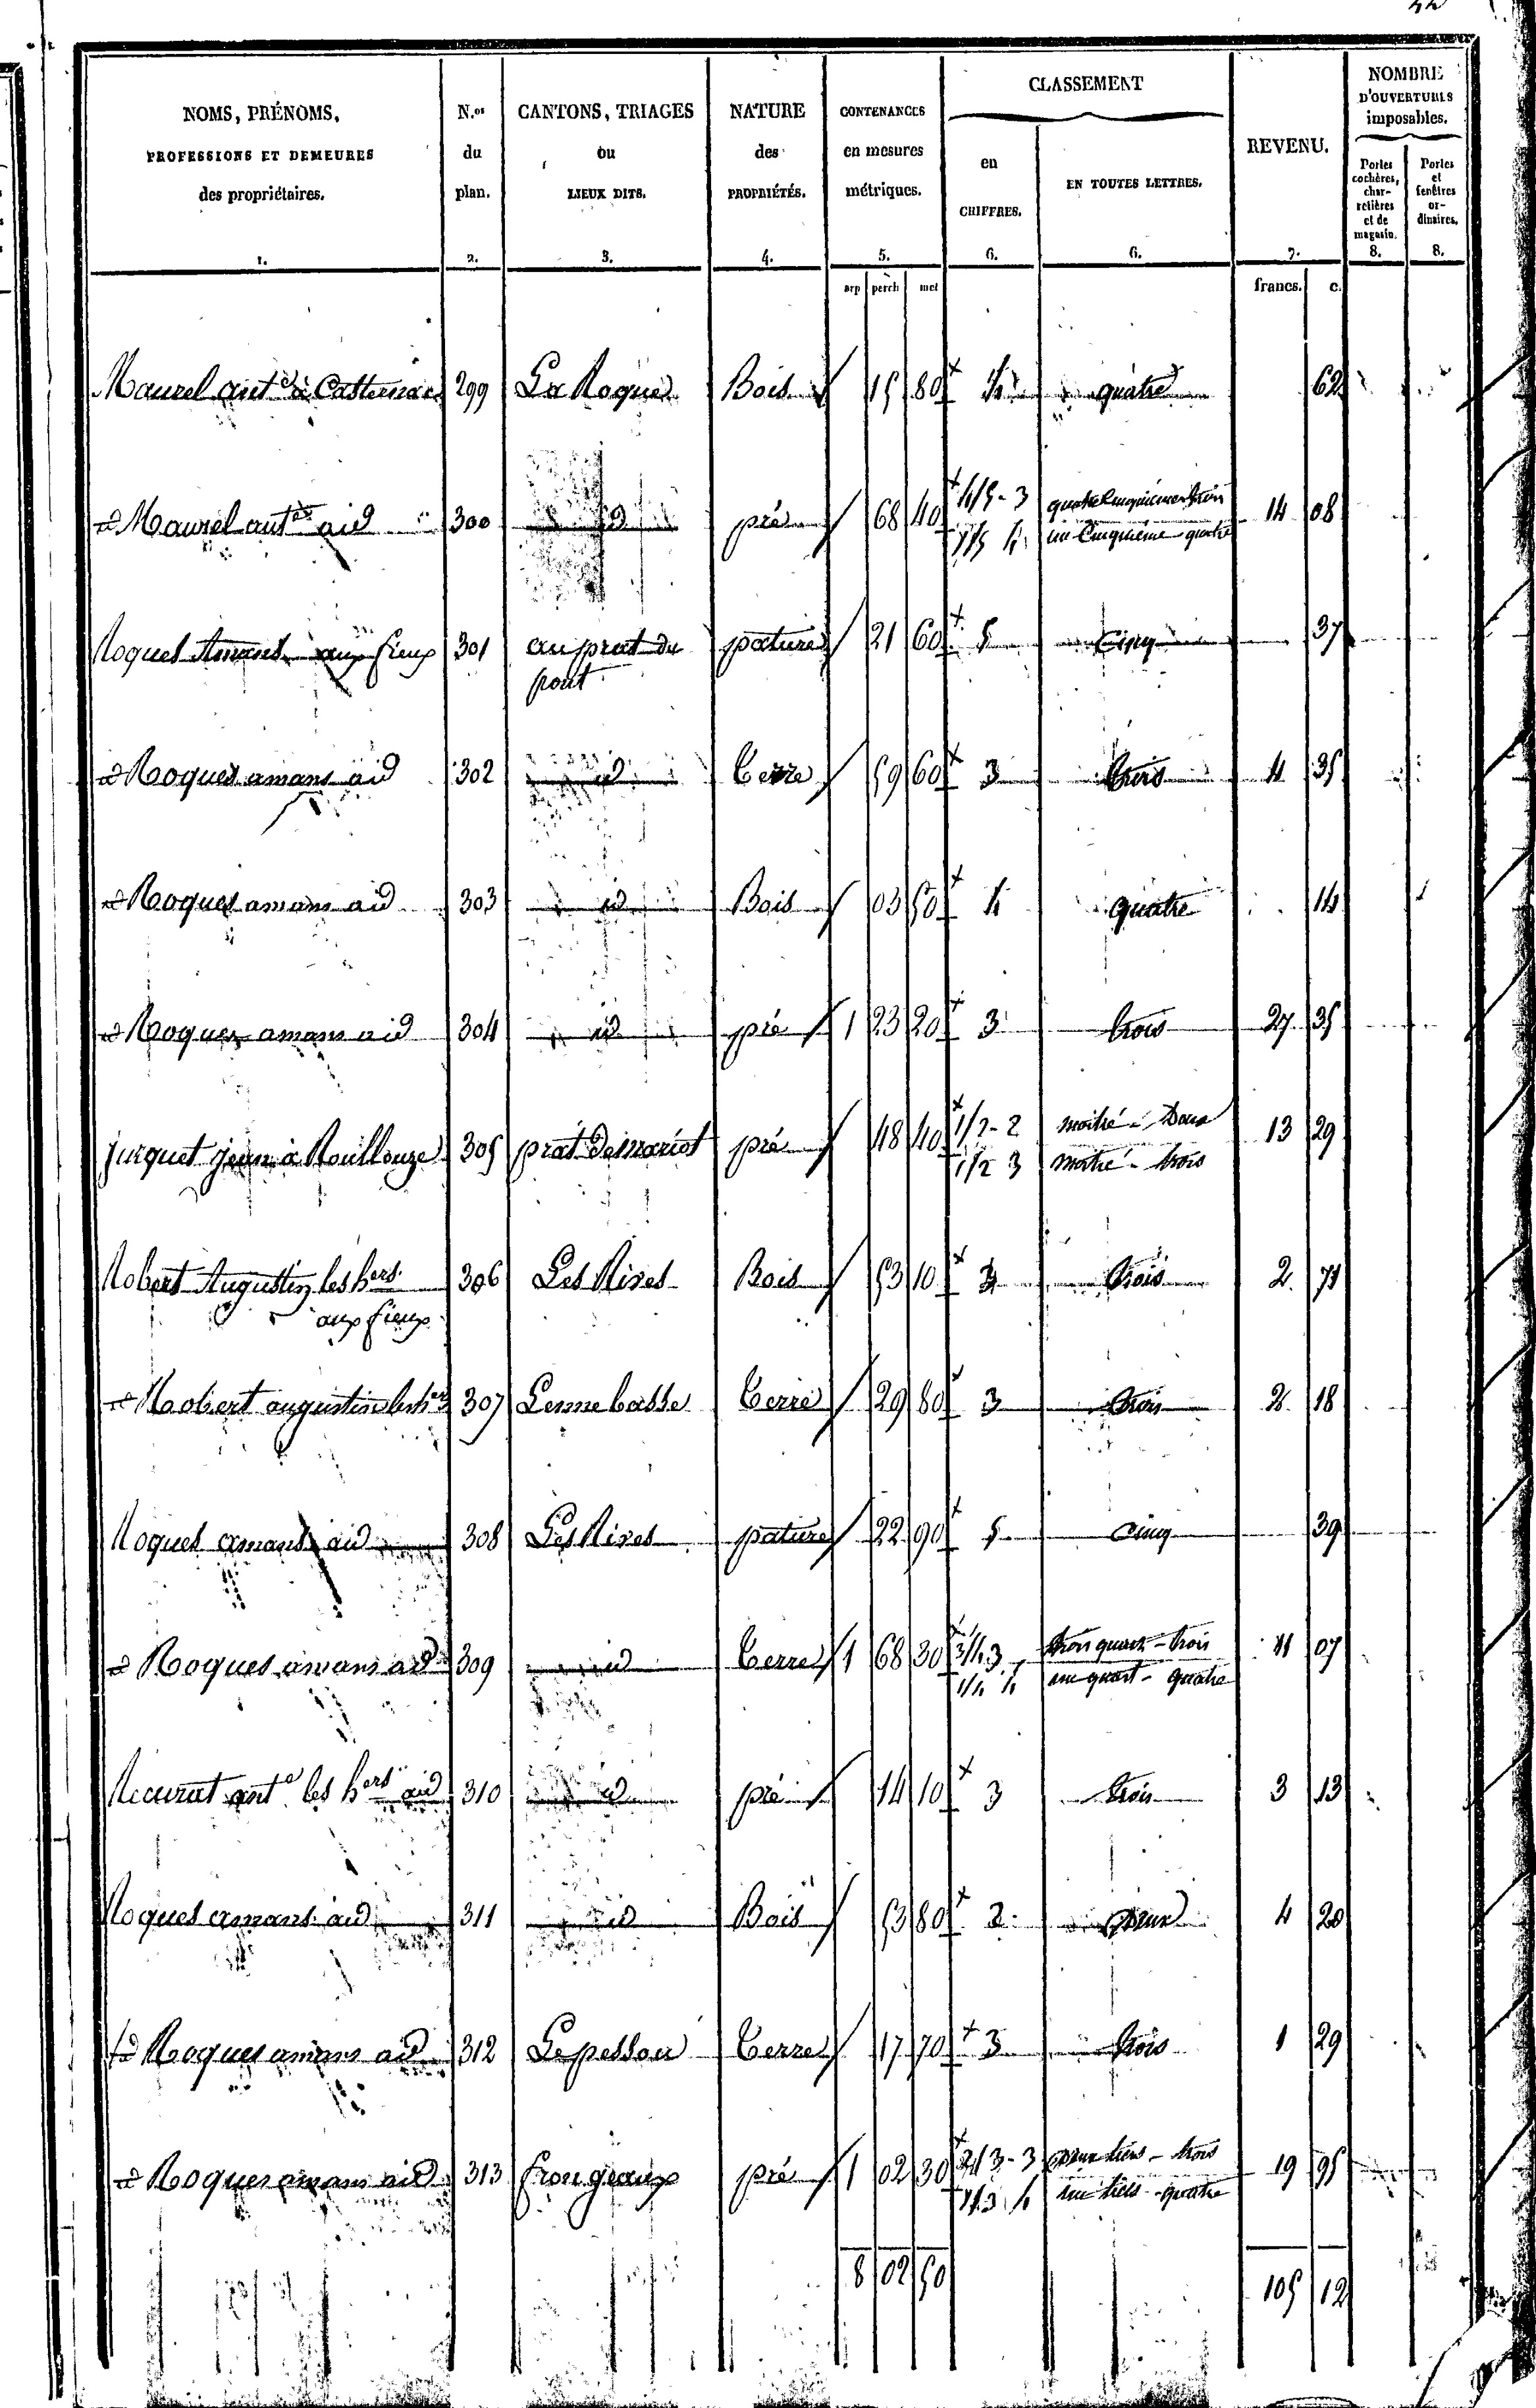 NOMS, PRÉNOMS, PROFESSIONS ET DEMEURES des propriétaires. 1.
N.os du plan. 2.
CANTONS, TRIAGES ou LIEUX DITS. 3.
NATURE des PROPRIÉTÉS. 4.
CONTENANCES en mesures métriques. 5.
CLASSEMENT
en CHIFFRES. 6.
EN TOUTES LETTRES. 6.
REVENU. 7.
NOMBRE D'OUVERTURES imposables.
Portes cochères, charretières et de magasin. 8.
Portes et fenêtres ordinaires. 8.
arp perch met francs. c.
Maurel ant.e à Castelnau 299 La Roque Bois 15 80 4 quatre 62
id Maurel ant.e aid 300 id pré 68 40 4/5 - 3 quatre cinquièmes trois 14 08
1/5 4 un Cinquième quatre
Roques Amans aux fieux 301 au prat du pont pature 21 60 5 Cinq 37
id Roques amans aid 302 id terre 59 60 3 trois 4 35
id Roques amans aid 303 id Bois 03 50 4 quatre 14
id Roques amans aid 304 id pré 1 23 20 3 trois 27 35
jurquet jean à 305 prat pré 48 40 1/2 - 2 moitié - Deux 13 29
1/2 3 moitié - trois
Robert Augustin les hers aux fieux 306 Les Rives Bois 53 10 3 trois 2 71
id Robert augustin les hers 307 basse terre 29 80 3 trois 2 18
Roques amans aid 308 Les Rives pature 22 90 5 Cinq 39
id Roques amans aid 309 id terre 1 68 30 3/4 3 trois quarts - trois 11 07
1/4 4 un quart - quatre
ant.e les hers aid 310 id pré 14 10 3 trois 3 13
Roques amans aid 311 id Bois 53 80 2 deux 4 20
id Roques amans aid 312 terre 17 70 3 trois 1 29
id Roques amans aid 313 frougeaux pré 1 02 30 2/3 - 3 deux tiers - trois 19 95
1/3 4 un tiers - quatre
8 02 50 105 12